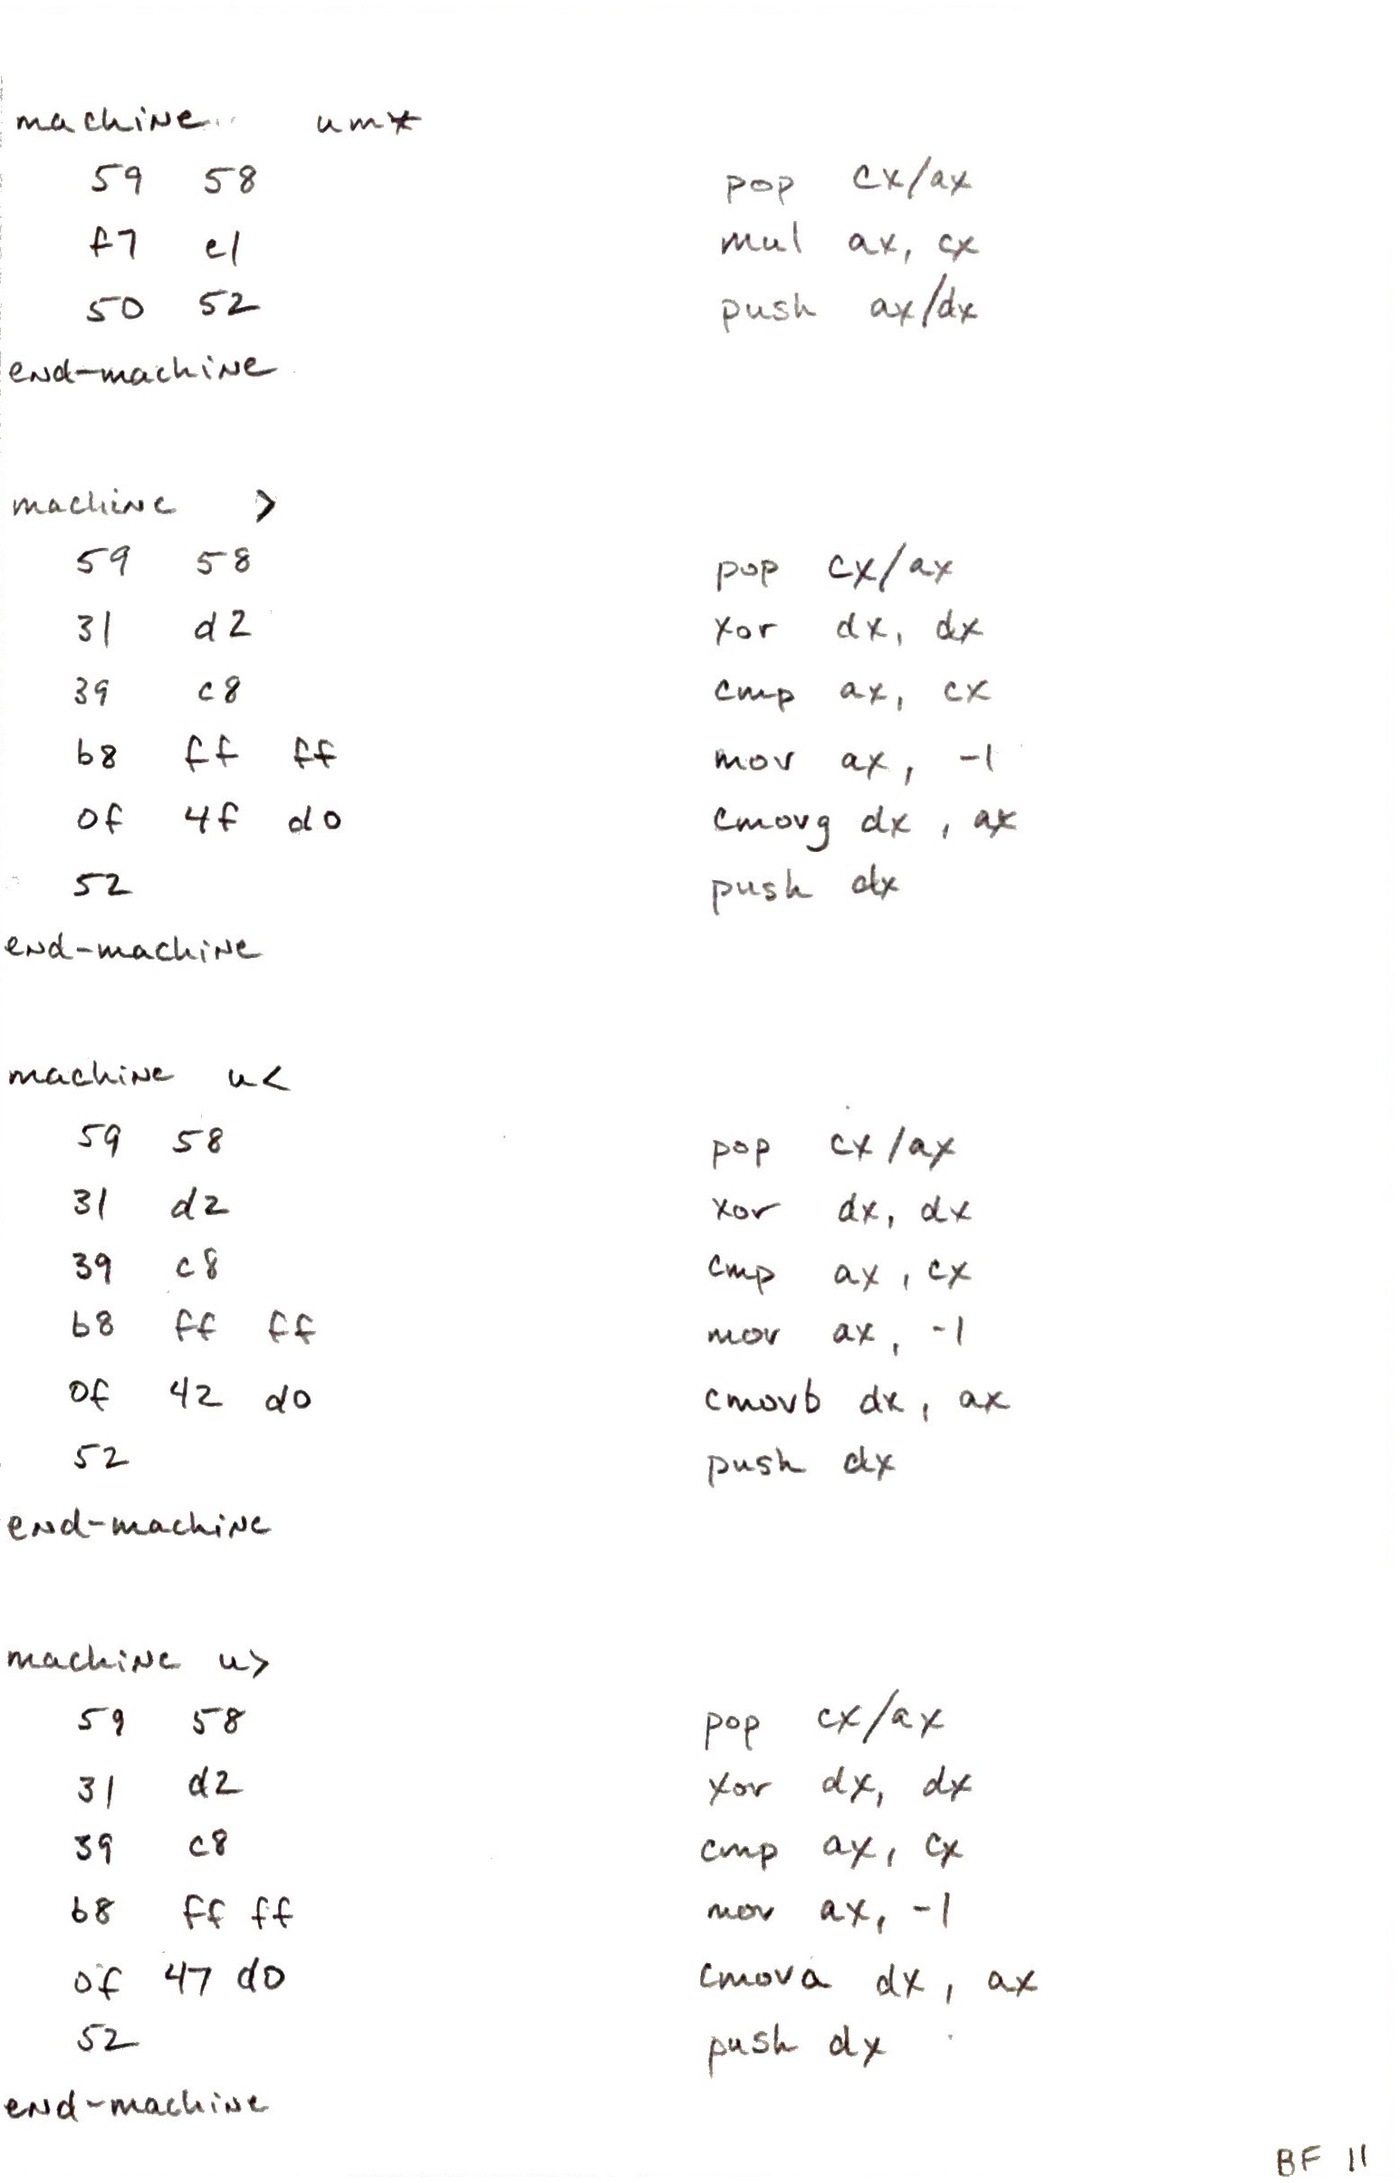 machine um*
59 58 pop cx/ax
f7 e1 mul ax, cx
50 52 push ax/dx
end-machine
machine >
59 58 pop cx/ax
31 d2 xor dx, dx
39 c8 cmp ax, cx
b8 ff ff mov ax, -1
0f 4f d0 cmovg dx, ax
52 push dx
end-machine
machine u<
59 58 pop cx/ax
31 d2 xor dx, dx
39 c8 cmp ax, cx
b8 ff ff mov ax, -1
0f 42 d0 cmovb dx, ax
52 push dx
end-machine
machine u>
59 58 pop cx/ax
31 d2 xor dx, dx
39 c8 cmp ax, cx
b8 ff ff mov ax, -1
0f 47 d0 cmova dx, ax
52 push dx
end-machine
BF 11